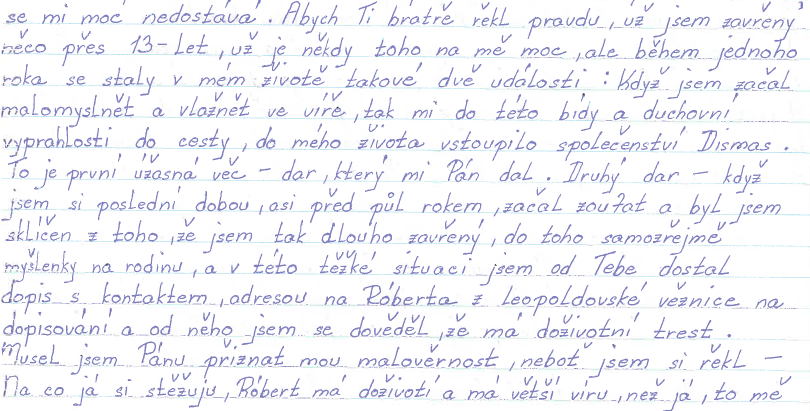 se mi moc nedostává. Abych Ti bratře řekl pravdu, už jsem zavřený
něco přes 13-let, už je někdy toho na mě moc, ale během jednoho
roka se staly v mém životě takové dvě události: Když jsem začal
malomyslnět a vlažnět ve víře, tak mi do této bídy a duchovní
vyprahlosti do cesty, do mého života vstoupilo společenství Dismas.
To je první úžasná věc - dar, který mi Pán dal. Druhý dar - když
jsem si poslední dobou, asi před půl rokem, začal zoufat a byl jsem
sklíčen z toho, že jsem tak dlouho zavřený, do toho samozřejmě
myšlenky na rodinu, a v této těžké situaci jsem od Tebe dostal
dopis s kontaktem, adresou na Róberta z Leopoldovské věznice na
dopisování a od něho jsem se dověděl, že má doživotní trest.
Musel jsem Pánu přiznat mou malověrnost, neboť jsem si řekl -
Na co já si stěžuju, Róbert má doživotí a má větší víru, než já, to mě